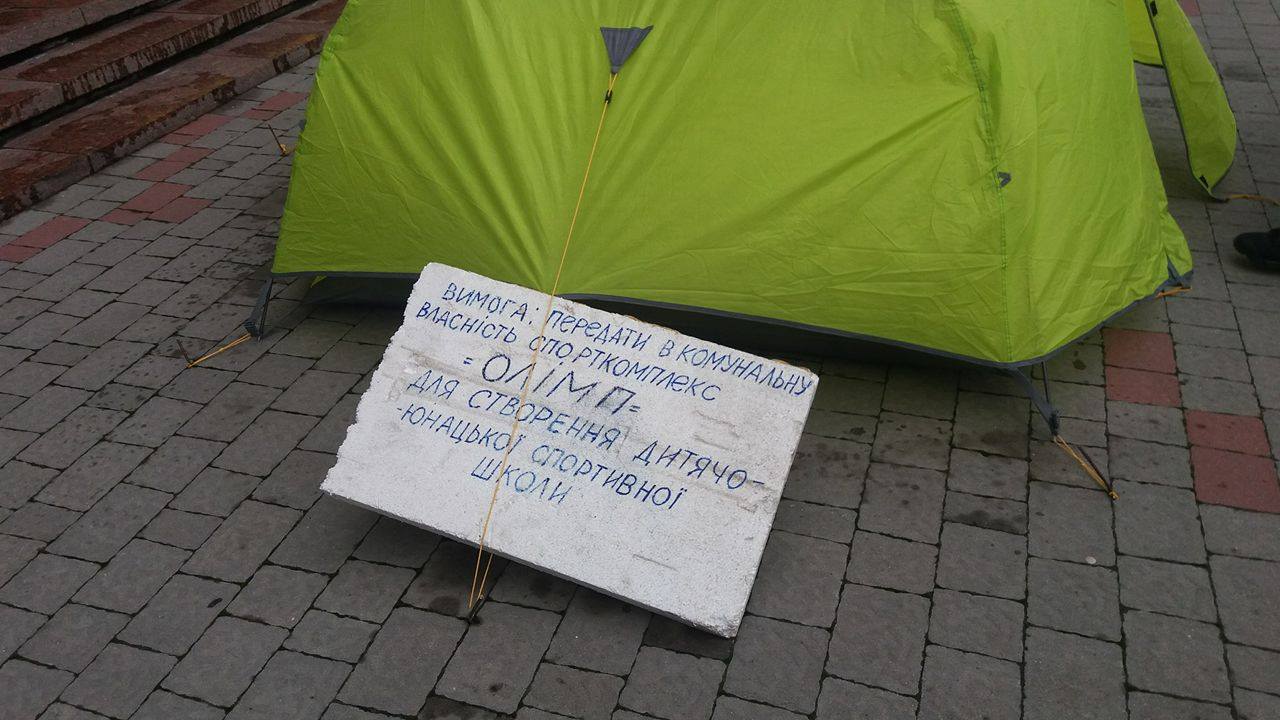 ВИМОГА: ПЕРЕДАТИ В КОМУНАЛЬНУ
ВЛАСНІСТЬ СПОРТКОМПЛЕКС
=ОЛІМП=
ДЛЯ СТВОРЕННЯ ДИТЯЧО-
-ЮНАЦЬКОЇ СПОРТИВНОЇ
ШКОЛИ